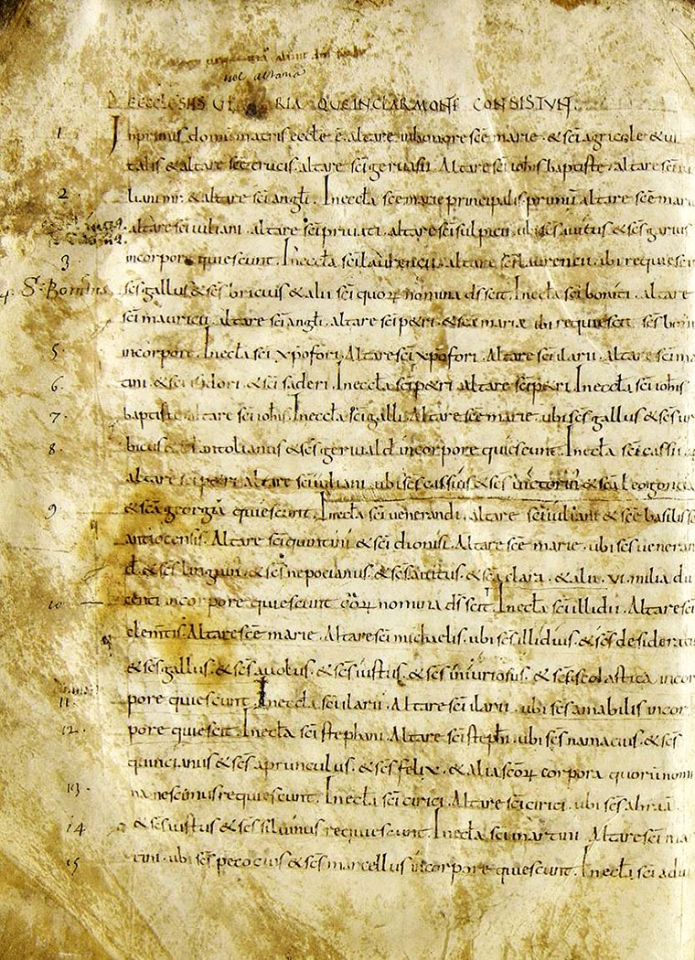 nol altaria
ECCLESIIS ALTARIA QUE IN CLARMONT CONSISTUN
1 Inprimis domū matris eccle ē altare in honore scē marie & sci agricole & ui
talis & altare scē crucis altare sci geruasii. Altare sci iohis baptiste. altare sci iu
2 liani mr & altare sci angli. In eccla scē marie principalis primū altare scē mari
altare sci iuliani. altare sci priuati. altare sci sulpicii. ubi scs auitus & scs garius
3 incorpore quiescunt. In eccla sci laurencii. altare sci laurencii. ubi requiesct
4. St Bonitus scs gallus & scs bricius & alii sci quoȝ nomina ds scit. In eccla sci boniti. altare
sci mauricii. altare sci angli. altare sci petri & scē mariæ ibi requiescit scs boni
5 in corpore. In eccla sci xpofori. Altare sci xpofori. Altare sci ilarii. altare sci ma
6. tini & sci isidori & sci saderi. In eccla sci petri altare sci petri. In eccla sci iohis
7. baptiste altare sci iohis. In eccla sci galli. Altare scē marie. ubi scs gallus & scs ur
8 bicus & antolianus & scs geriuald incorpore quiescunt. In eccla sci cassii.
altare sci petri altare sci iuliani. ubi scs cassius & scs uictorin & sca leogoncia
9 & sca georgia quiescunt. In eccla sci uenerandi. altare sci iuliani & scē basiliss
antiocensis. Altare sci quintini & sci dionisi. Altare scē marie. ubi scs ueneran
d & scs linguini. & scs nepocianus & scs auitus & sca clara. & alii. VI milia du
10 centi incorpore quiescunt quoȝ nomina ds scit. In eccla sci illidii. Altare sci
clemtis. Altare scē marie. Altare sci michaelis. ubi scs illidius. & scs desiderat
& scs gallus. & scs auolus. & scs iustus. & scs iniuriosus. & scē scolastica incor
11. pore quiescunt. In eccla sci ilarii. Altare sci ilarii. ubi scs amabilis incor
12. pore quiescit. In eccla sci stephani. Altare sci stephi. ubi scs namacius. & scs
quincianus & scs aprunculus. & scs felix. & alia scoȝ corpora quorū nomi
13. na nescimus requiescunt. In eccla sci cirici. Altare sci cirici. ubi scs abraā.
14 & scs iustus & scs siluinus requiescunt. In eccla sci martini Altare sci ma
15 tini. ubi scs pecocius & scs marcellus incorpore quiescunt. In eccla sci adiu